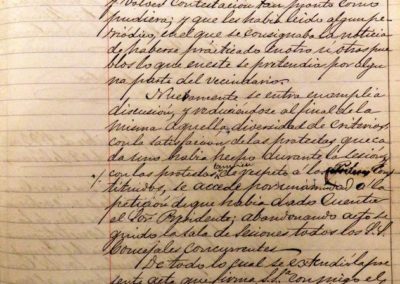 y volver contestación tan pronto como
pudiera; y que les había leido algun pe-
riódico, en el que se consignaba la noticia
de haberse prácticado en otro u otros pue-
blos lo que en este se pretendia por algu-
na parte del vecindario.
Nuevamente se entra en amplia
discusión, y reduciéndose al final de la
misma aquella diversidad de criterios,
con la satisfacción de las protestas que ca-
da uno había hecho durante la sesión
con las protestas de respeto a los poderes Cons-
tituidos, se accede por unanimidad a la
petición de que había dado cuenta
el Sor. Presidente; abandonando acto se-
guido la sala de sesiones todos los S.S.
Concejales concurrentes.
De todo lo cual se extendió la pre-
sente acta que firma S.Sª. conmigo el